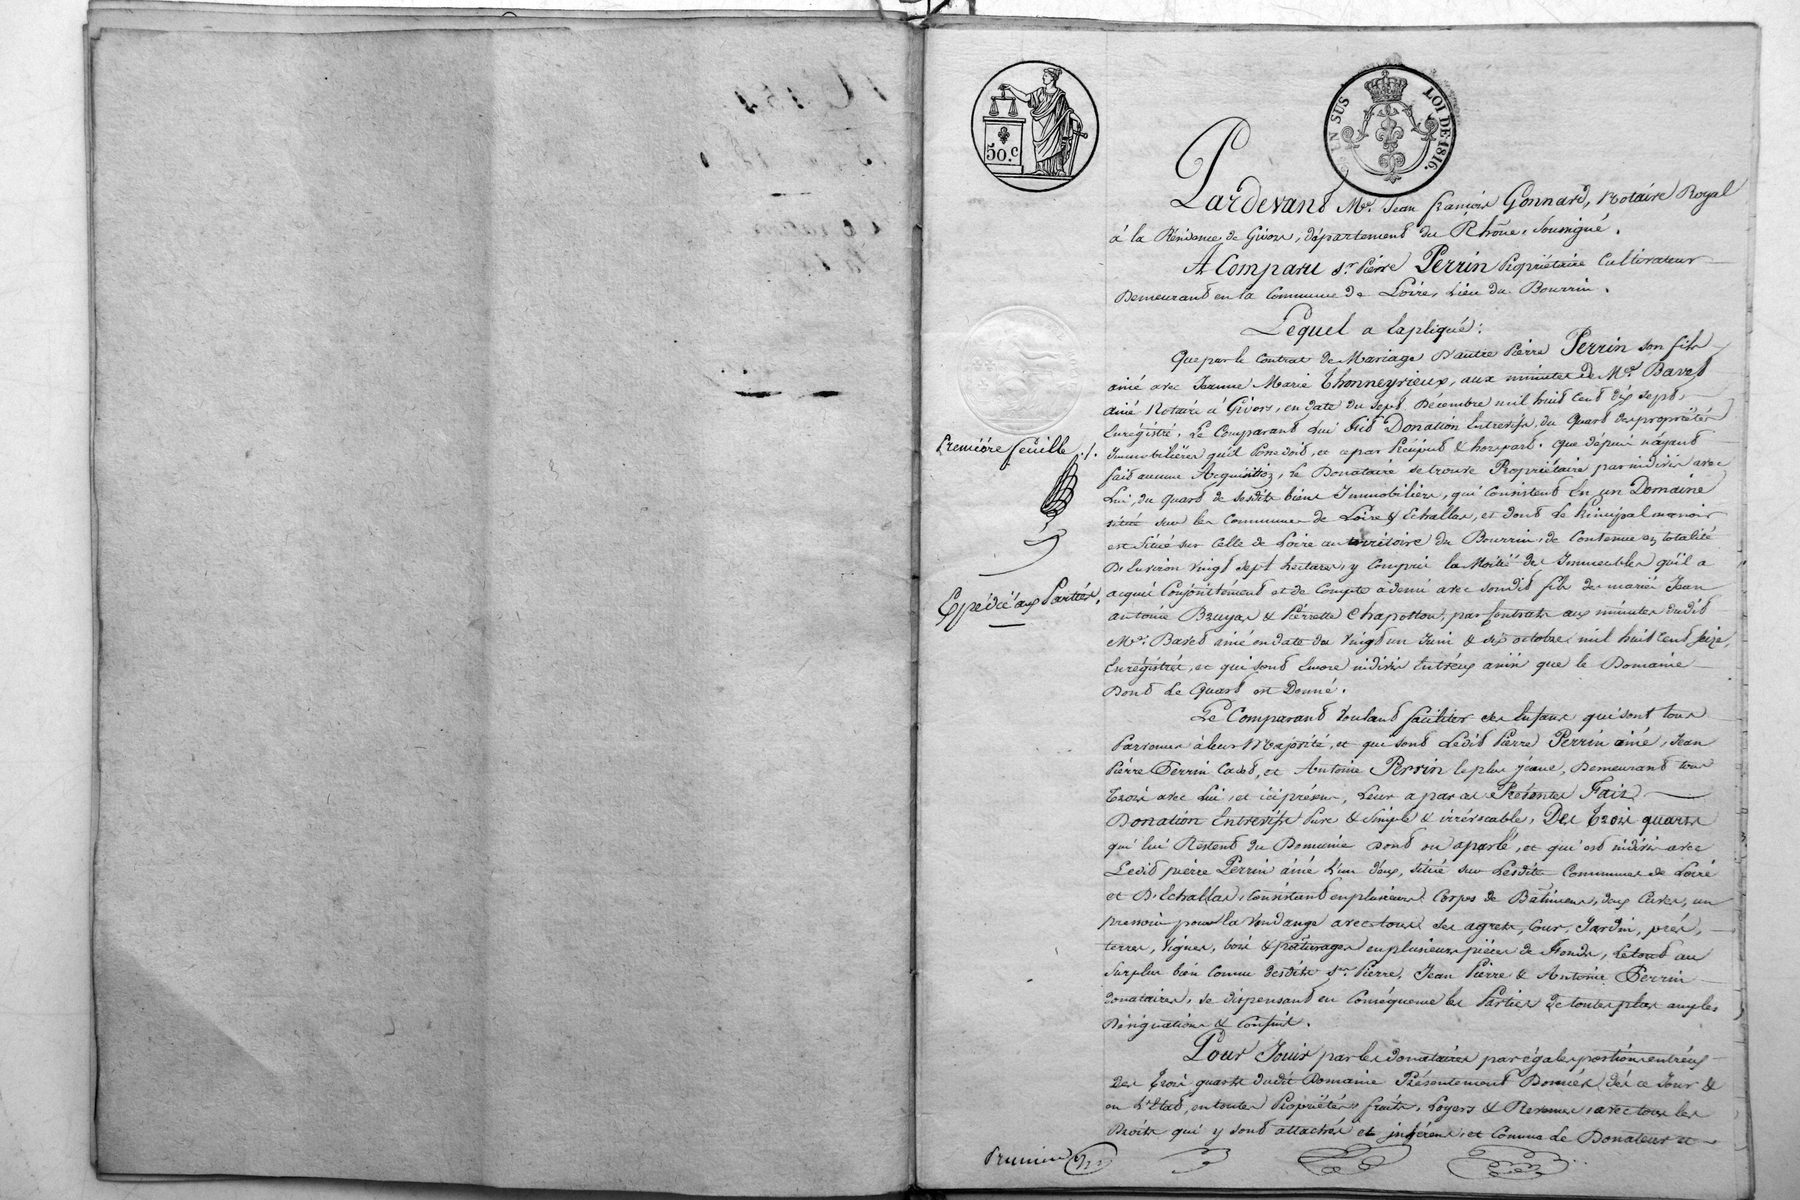 50.c
EN SUS LOI DE 1816.
Pardevant Me. Jean françois Gonnard, Notaire Royal
à la Résidence de Givors, département du Rhône, Soussigné.
A Comparu Sr. Pierre Perrin Propriétaire Cultivateur
Demeurant en la Commune de Loire, Lieu du Bourrin.
Lequel a Expliqué:
Que par le Contrat de Mariage D'autre Pierre Perrin son fils
ainé avec Jeanne Marie Thonneyrieux, aux minutes de Me. Bavet
ainé Notaire à Givors, en date du Sept Décembre mil huit Cent dix sept,
Enrégistré, Le Comparant Lui fit Donation Entrevifs, du Quart des propriétés
Immobilières qu'il Possedoit, et a par Préciput & horspart. que depuis n'ayant
fait aucune Acquisition, Le Donataire se trouve Propriétaire par indivis avec
Lui, du Quart de Sesdits biens Immobiliers, qui Consistent En un Domaine
situé sur les Communes de Loire & Echallas, et dont Le Principal manoir
est Situé sur Celle de Loire au territoire du Bourrin, de Contenue en totalité
D'Environ vingt Sept hectares, y Compris la Moitié des Immeubles qu'il a
acquis Conjointement et de Compte à demi avec sondit fils des mariés Jean
antoine Bruyas & Pierrette Chapotton, par Contrats aux minutes dudit
Me. Bavet ainé en date du Vingt un Juin & dix octobre mil huit Cent seize,
Enrégistrés, et qui sont Encore indivis Entr'eux ainsi que le Domaine
Dont Le Quart est Donné.
Le Comparant Voulant faciliter ses Enfans qui sont tous
Parvenus à leur Majorité, et qui sont Ledit Pierre Perrin ainé, Jean
Pierre Perrin Cadet, et Antoine Perrin le plus jeune, Demeurant tous
Trois avec Lui, et ici présens, Leur a par ces Présentes Fait
Donation Entrevifs Pure & Simple & irrévocable, Des Trois quarts
qui lui Restent du Domaine Dont on a parlé, et qui est indivis avec
Ledit pierre Perrin ainé L'un d'eux, situé sur Lesdites Communes de Loire
et D'Echallas, Consistant en plusieurs Corps de Bâtimens, deux Cuves, un
Pressoir pour la Vendange avec tous ses agrets, Cour, Jardin, prés,
terres, Vignes, bois & pâturages en plusieurs pièces de Fonds, Le tout au
Surplus bien Connu desdits Srs. Pierre, Jean Pierre & Antoine Perrin
donataires, se dispensant en Conséquence les Parties de toutes plus amples
Désignations & Confins.
Pour Jouir par les donataires par égales portions entr'eux
Des Trois quarts dudit Domaine Présentement Donnés, dès ce Jour &
en L'Etat, en toutes Propriétés, fruits, Loyers & Revenus, avec tous les
Droits qui y sont attachés et inhérens, et Comme Le Donateur et
Première feuille ./.
Expédié aux Parties.